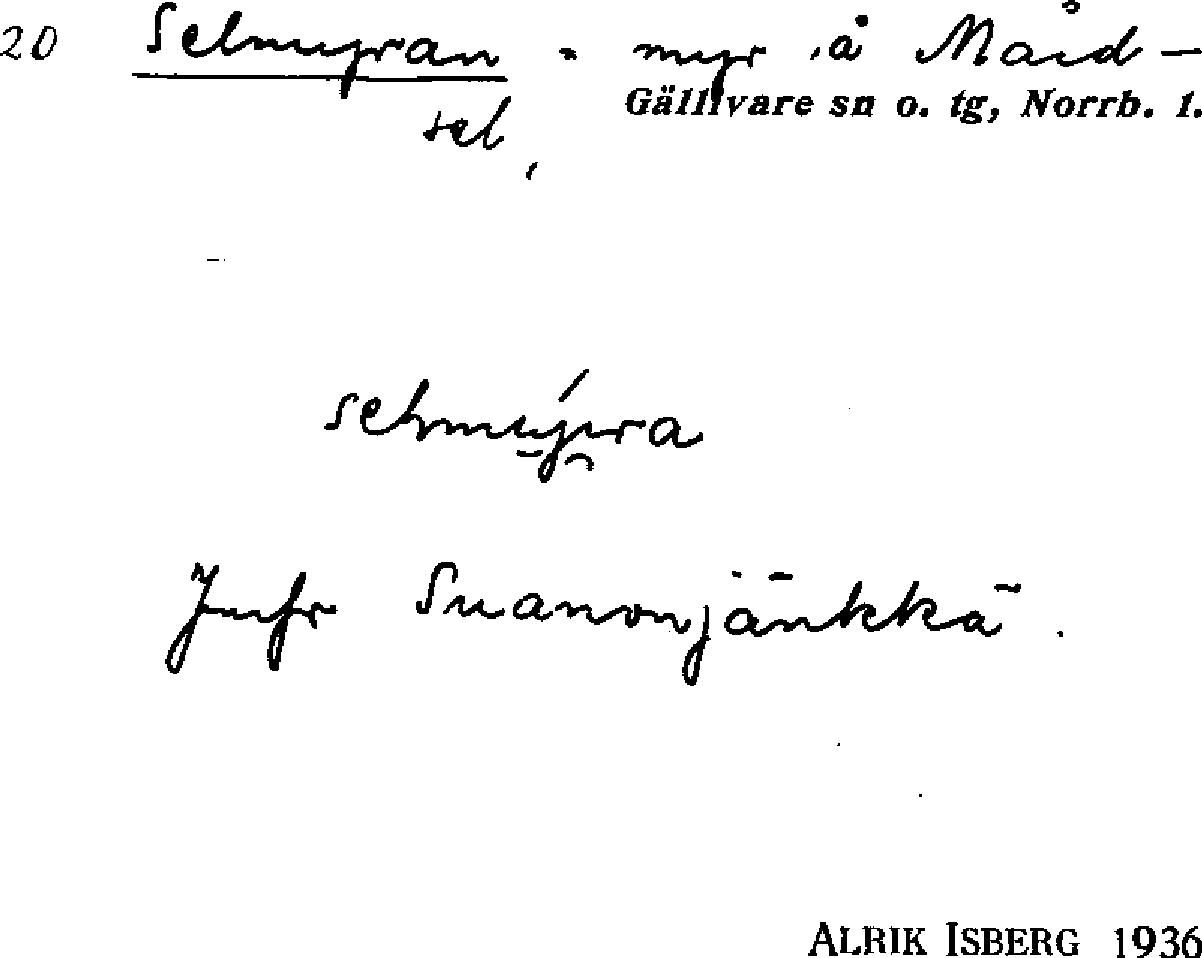 20 Selmyran = myr å MåRd-
Gällivare sn o. tg, Norrb. l.
sel,
selmyra
Jmfr Suanonjänkkä.
ALRIK ISBERG 1936